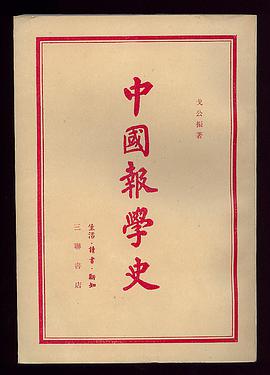 中國報學史
戈公振著
生活·讀書·新知
三聯書店